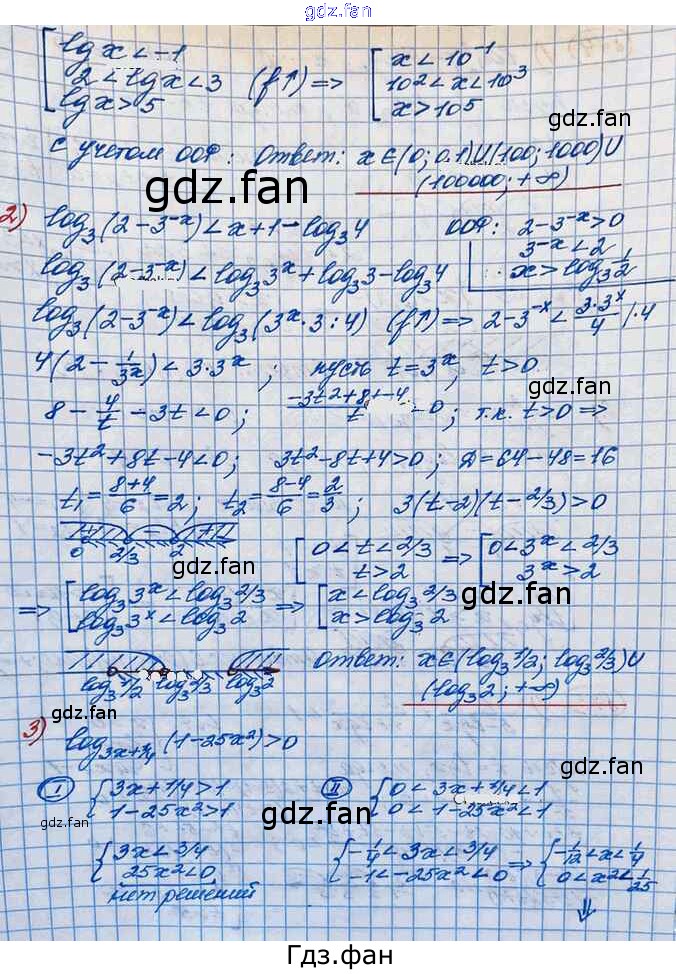 gdz.fan
lg x < -1
2 < lg x < 3 (f↑) =>
lg x > 5
x < 10⁻¹
10² < x < 10³
x > 10⁵
с учетом ООФ: Ответ: x∈(0; 0.1)U(100; 1000)U
(100000; +∞)
gdz.fan
2) log₃(2-3⁻ˣ) < x+1-log₃4
ООФ: 2-3⁻ˣ>0
3⁻ˣ<2
x>log₃ 1/2
log₃(2-3⁻ˣ) < log₃3ˣ+log₃3-log₃4
log₃(2-3⁻ˣ) < log₃(3ˣ·3:4) (f↑) => 2-3⁻ˣ < 3·3ˣ/4 |·4
4(2-1/3ˣ) < 3·3ˣ; пусть t=3ˣ, t>0
gdz.fan
8-4/t-3t<0; -3t²+8t-4/t <0; т.к. t>0 =>
-3t²+8t-4<0; 3t²-8t+4>0; Д=64-48=16
t₁=8+4/6=2; t₂=8-4/6=2/3; 3(t-2)(t-2/3)>0
+ - +
0 2/3 2
0<t<2/3
t>2
=>
0<3ˣ<2/3
3ˣ>2
gdz.fan
gdz.fan
=> log₃3ˣ<log₃2/3
log₃3ˣ<log₃2
=> x<log₃2/3
x>log₃2
log₃1/2 log₃2/3 log₃2
Ответ: x∈(log₃1/2; log₃2/3)U
(log₃2; +∞)
gdz.fan
gdz.fan
3) log₃ₓ₊₁/₄(1-25x²)>0
I 3x+1/4>1
1-25x²>1
II 0<3x+1/4<1
0<1-25x²<1
gdz.fan
gdz.fan
gdz.fan
3x<3/4
25x²<0
нет решений
-1/4<3x<3/4
-1<-25x²<0
=> -1/12<x<1/4
0<x²<1/25
⇓
gdz.fan
Гдз.фан